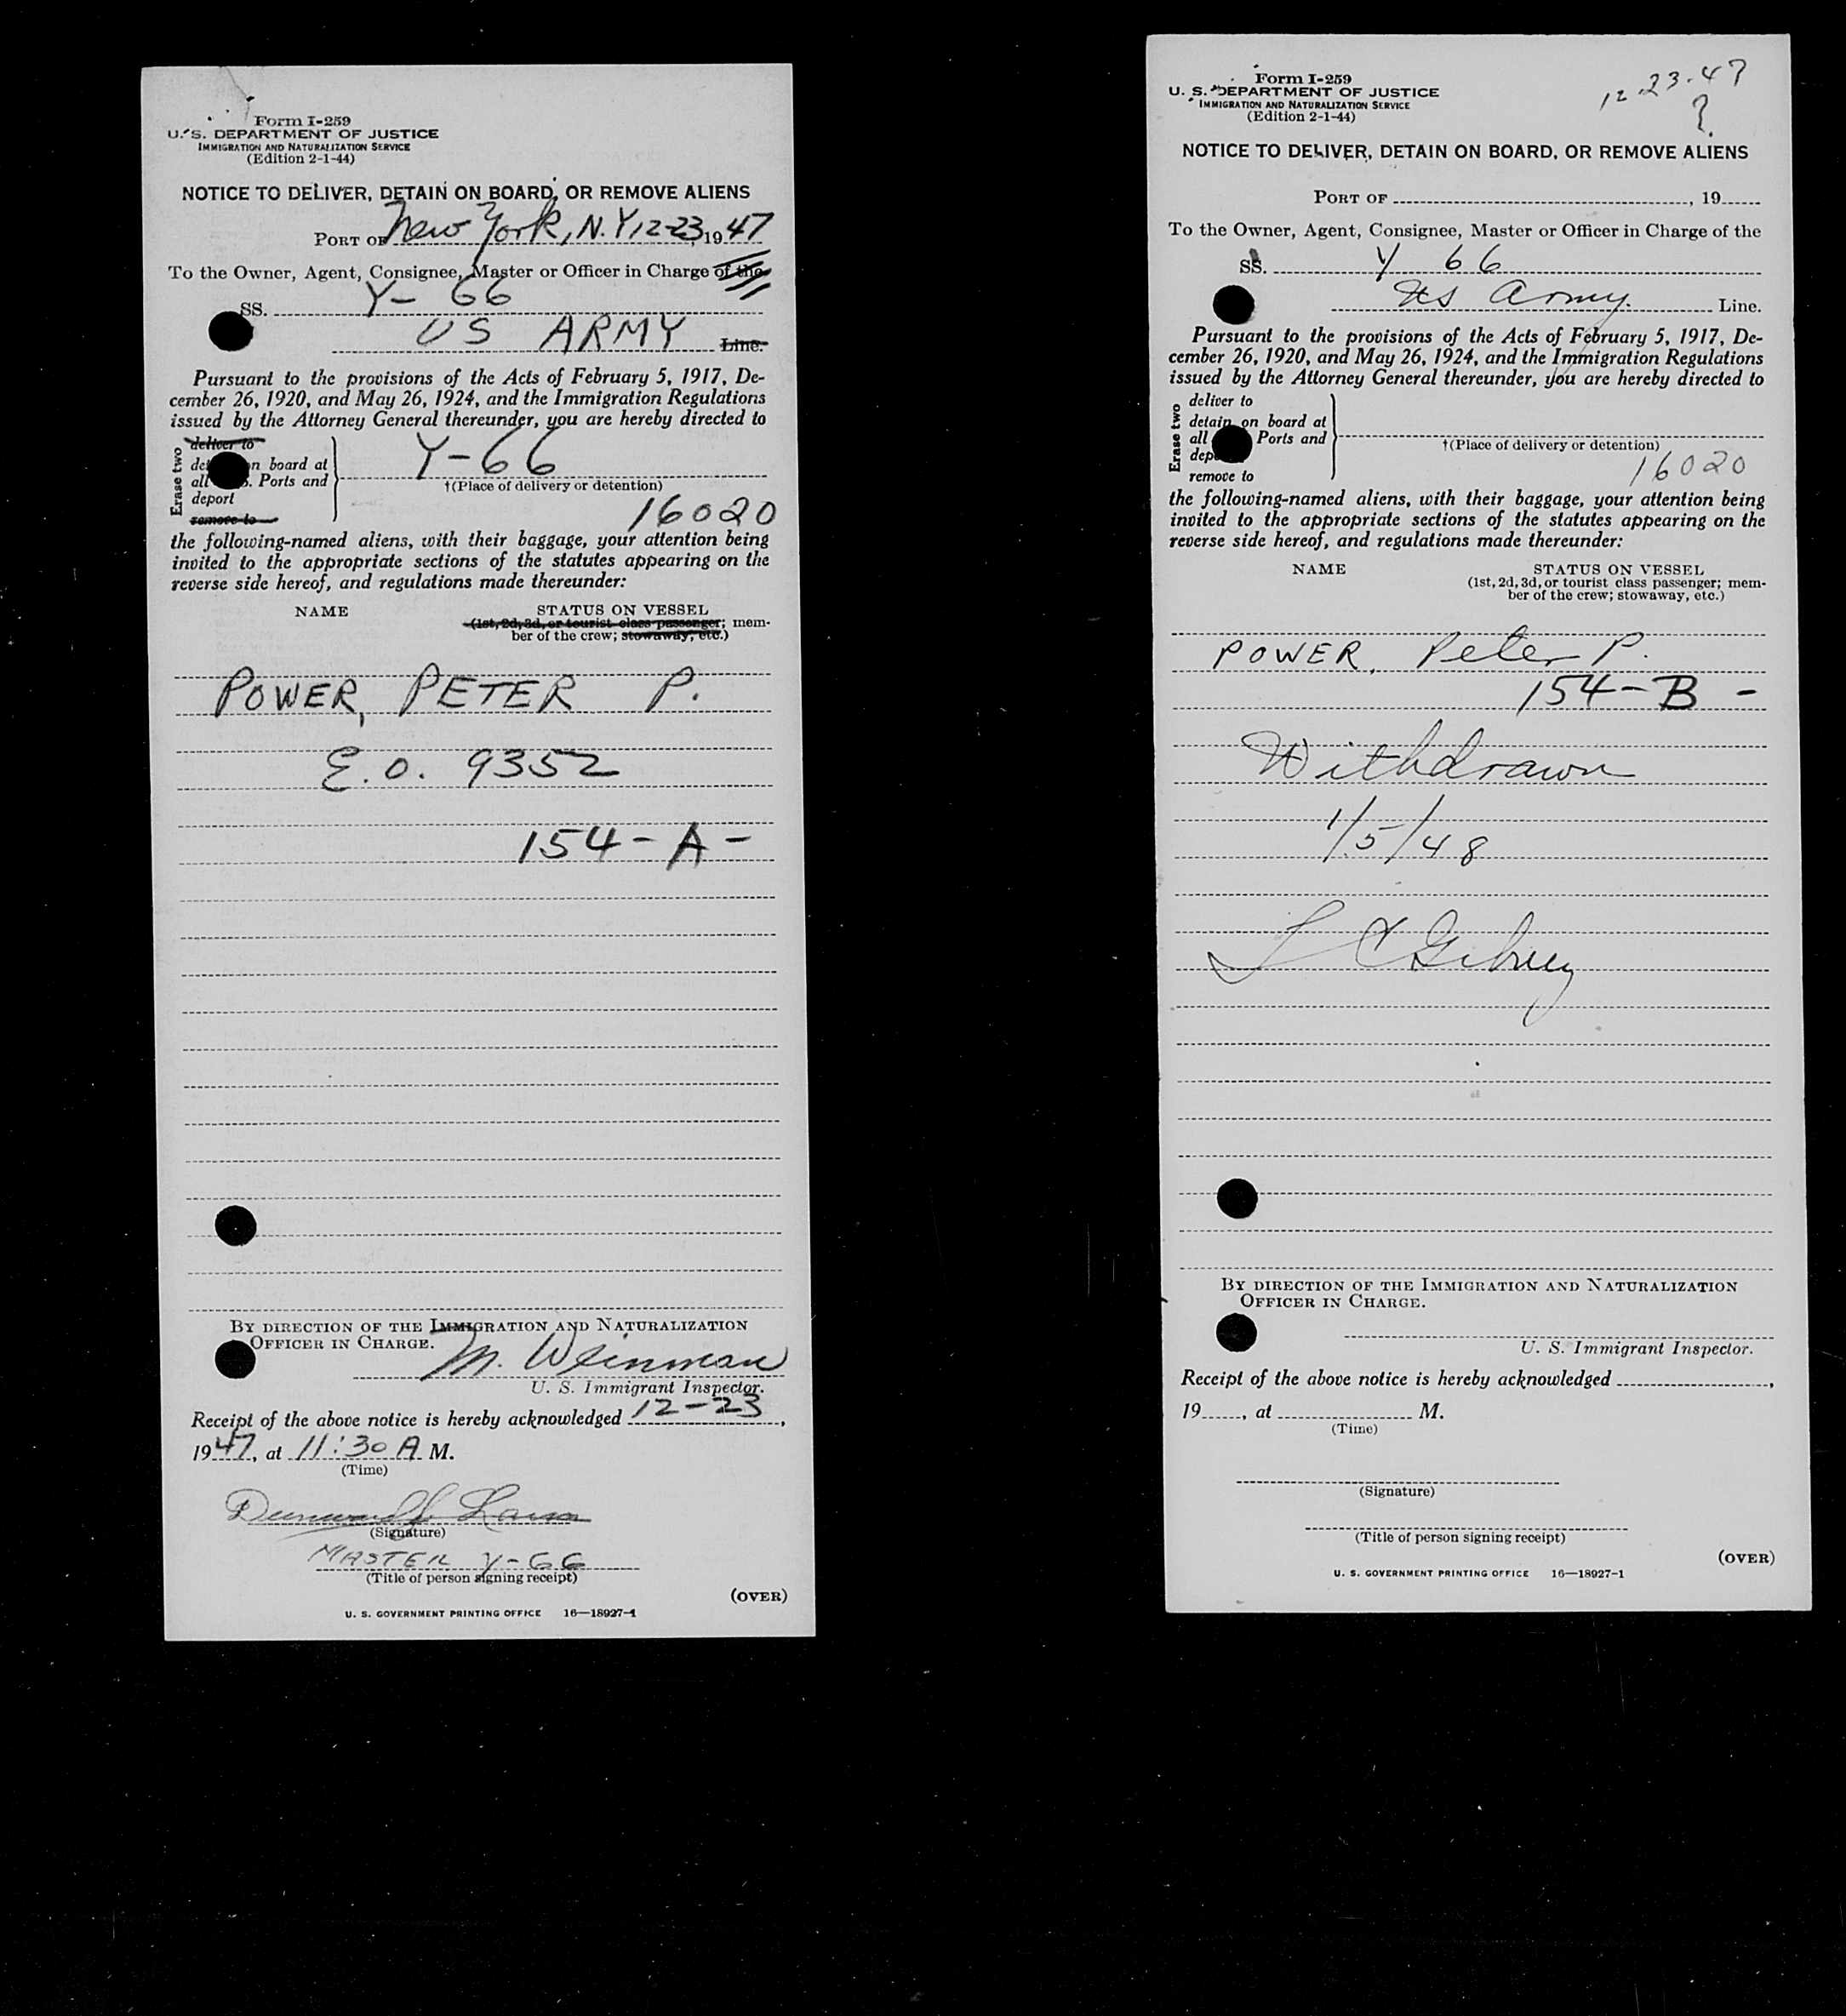 Form I-259
U. S. DEPARTMENT OF JUSTICE
IMMIGRATION AND NATURALIZATION SERVICE
(Edition 2-1-44)
NOTICE TO DELIVER, DETAIN ON BOARD, OR REMOVE ALIENS
PORT OF New York, N.Y 12-23, 1947
To the Owner, Agent, Consignee, Master or Officer in Charge of the
SS. Y- 66
US ARMY Line.
Pursuant to the provisions of the Acts of February 5, 1917, De-
cember 26, 1920, and May 26, 1924, and the Immigration Regulations
issued by the Attorney General thereunder, you are hereby directed to
Erase two
deliver to
n board at
all . Ports and
deport
remove to
Y-66
†(Place of delivery or detention)
16020
the following-named aliens, with their baggage, your attention being
invited to the appropriate sections of the statutes appearing on the
reverse side hereof, and regulations made thereunder:
NAME STATUS ON VESSEL
(1st, 2d, 3d, or tourist class passenger; mem-
ber of the crew; stowaway, etc.)
POWER, PETER P.
E.O. 9352
154-A-
BY DIRECTION OF THE IMMIGRATION AND NATURALIZATION
OFFICER IN CHARGE.
M. Weinman
U. S. Immigrant Inspector.
Receipt of the above notice is hereby acknowledged 12-23,
1947, at 11:30 A M.
(Time)
(Signature)
MASTER Y-66
(Title of person signing receipt)
(OVER)
U. S. GOVERNMENT PRINTING OFFICE 16—18927-1
Form I-259
U. S. DEPARTMENT OF JUSTICE
IMMIGRATION AND NATURALIZATION SERVICE
(Edition 2-1-44)
12-23-47
?
NOTICE TO DELIVER, DETAIN ON BOARD, OR REMOVE ALIENS
PORT OF , 19
To the Owner, Agent, Consignee, Master or Officer in Charge of the
SS. Y 66
US Army. Line.
Pursuant to the provisions of the Acts of February 5, 1917, De-
cember 26, 1920, and May 26, 1924, and the Immigration Regulations
issued by the Attorney General thereunder, you are hereby directed to
Erase two
deliver to
detain on board at
all Ports and
dep
remove to
†(Place of delivery or detention)
16020
the following-named aliens, with their baggage, your attention being
invited to the appropriate sections of the statutes appearing on the
reverse side hereof, and regulations made thereunder:
NAME STATUS ON VESSEL
(1st, 2d, 3d, or tourist class passenger; mem-
ber of the crew; stowaway, etc.)
POWER, Peter P.
154-B-
Withdrawn
1/5/48
BY DIRECTION OF THE IMMIGRATION AND NATURALIZATION
OFFICER IN CHARGE.
U. S. Immigrant Inspector.
Receipt of the above notice is hereby acknowledged ,
19 , at M.
(Time)
(Signature)
(Title of person signing receipt)
(OVER)
U. S. GOVERNMENT PRINTING OFFICE 16—18927-1